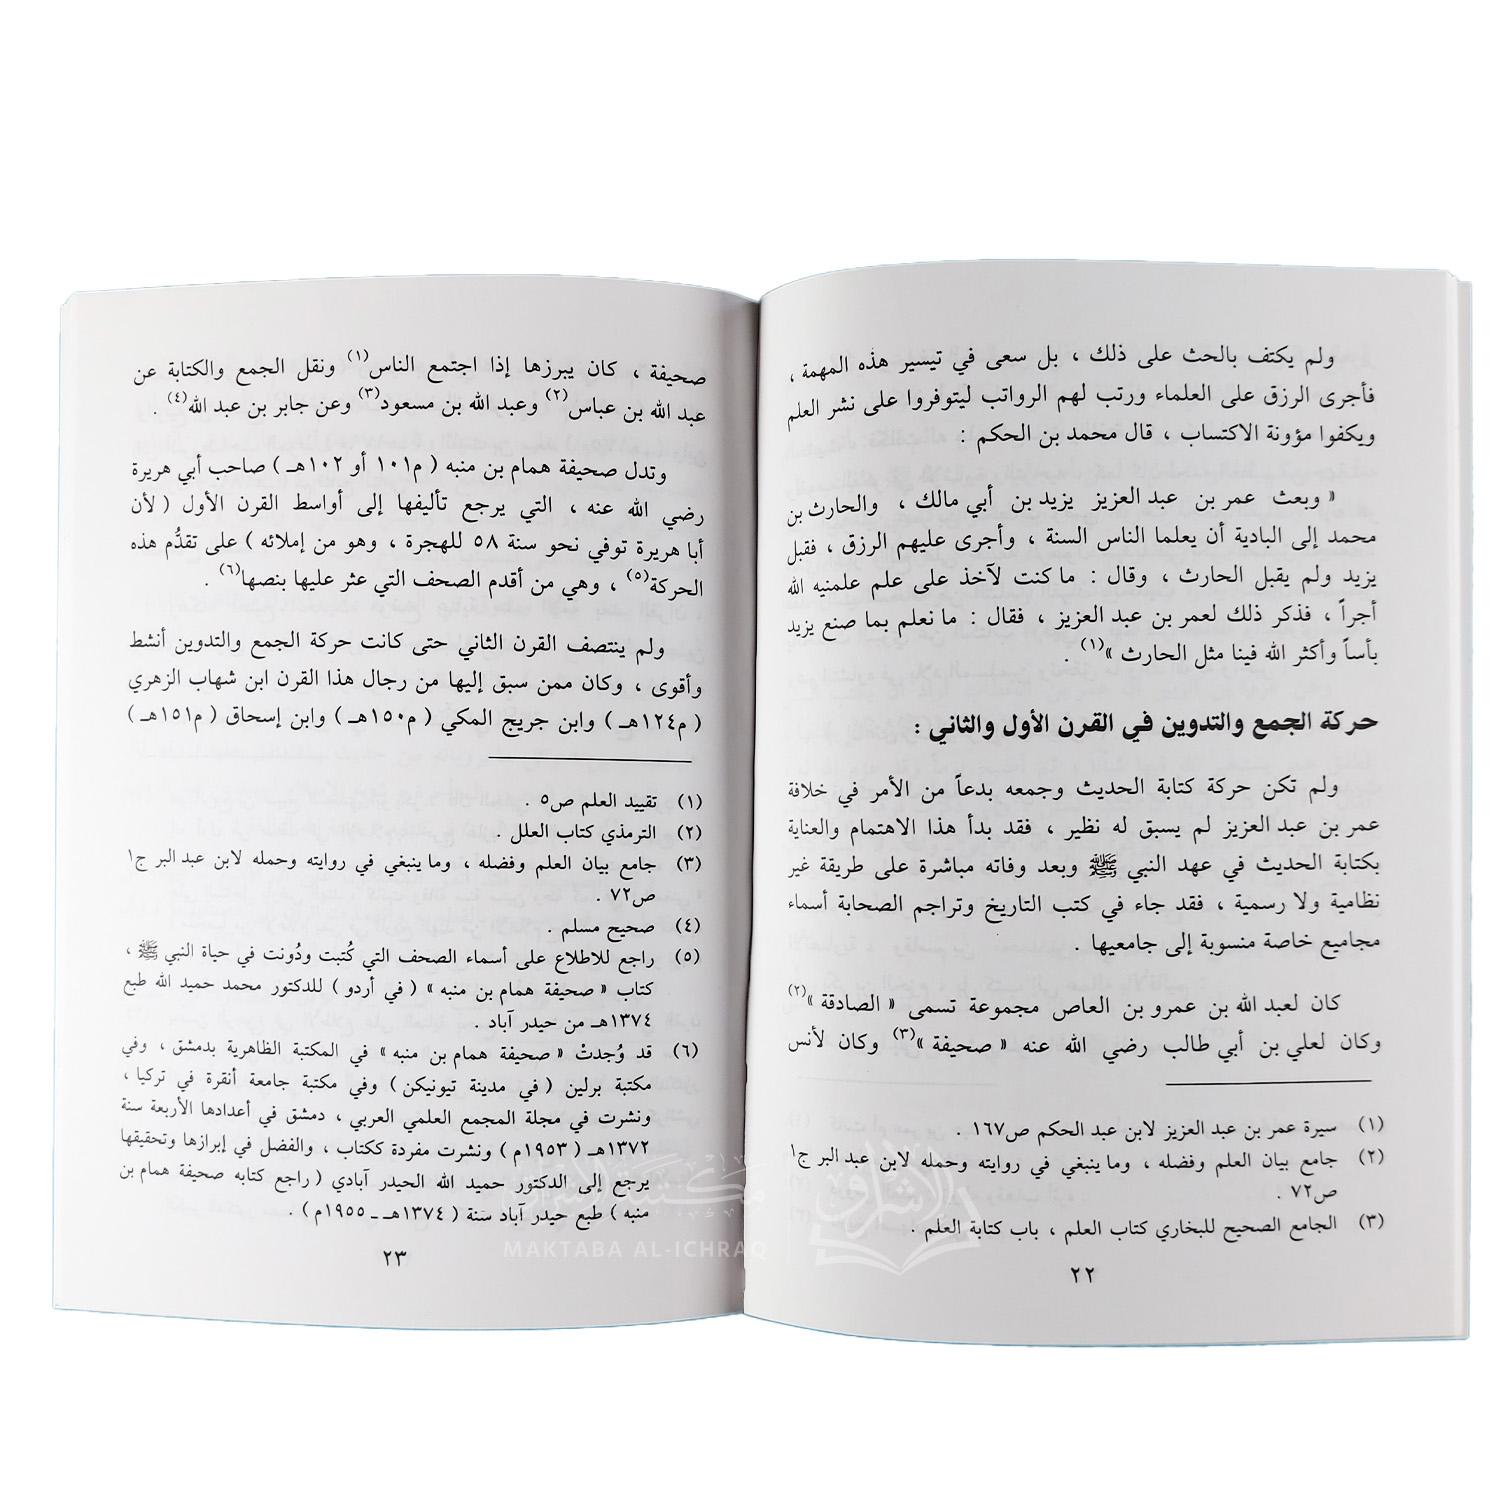 ولم يكتف بالحث على ذلك ، بل سعى في تيسير هذه المهمة ،
فأجرى الرزق على العلماء ورتب لهم الرواتب ليتوفروا على نشر العلم
ويكفوا مؤونة الاكتساب ، قال محمد بن الحكم :
« وبعث عمر بن عبد العزيز يزيد بن أبي مالك ، والحارث بن
محمد إلى البادية أن يعلما الناس السنة ، وأجرى عليهم الرزق ، فقبل
يزيد ولم يقبل الحارث ، وقال : ما كنت لآخذ على علم علمنيه الله
أجراً ، فذكر ذلك لعمر بن عبد العزيز ، فقال : ما نعلم بما صنع يزيد
بأساً وأكثر الله فينا مثل الحارث »(١) .
حركة الجمع والتدوين في القرن الأول والثاني :
ولم تكن حركة كتابة الحديث وجمعه بدعاً من الأمر في خلافة
عمر بن عبد العزيز لم يسبق له نظير ، فقد بدأ هذا الاهتمام والعناية
بكتابة الحديث في عهد النبي ﷺ وبعد وفاته مباشرة على طريقة غير
نظامية ولا رسمية ، فقد جاء في كتب التاريخ وتراجم الصحابة أسماء
مجاميع خاصة منسوبة إلى جامعيها .
كان لعبد الله بن عمرو بن العاص مجموعة تسمى « الصادقة »(٢)
وكان لعلي بن أبي طالب رضي الله عنه « صحيفة »(٣) وكان لأنس
(١) سيرة عمر بن عبد العزيز لابن عبد الحكم ص١٦٧ .
(٢) جامع بيان العلم وفضله ، وما ينبغي في روايته وحمله لابن عبد البر ج١
ص٧٢ .
(٣) الجامع الصحيح للبخاري كتاب العلم ، باب كتابة العلم .
٢٢
صحيفة ، كان يبرزها إذا اجتمع الناس(١) ونقل الجمع والكتابة عن
عبد الله بن عباس(٢) وعبد الله بن مسعود(٣) وعن جابر بن عبد الله(٤) .
وتدل صحيفة همام بن منبه ( م١٠١ أو ١٠٢هـ ) صاحب أبي هريرة
رضي الله عنه ، التي يرجع تأليفها إلى أواسط القرن الأول ( لأن
أبا هريرة توفي نحو سنة ٥٨ للهجرة ، وهو من إملائه ) على تقدُّم هذه
الحركة(٥) ، وهي من أقدم الصحف التي عثر عليها بنصها(٦) .
ولم ينتصف القرن الثاني حتى كانت حركة الجمع والتدوين أنشط
وأقوى ، وكان ممن سبق إليها من رجال هذا القرن ابن شهاب الزهري
( م١٢٤هـ ) وابن جريج المكي ( م١٥٠هـ ) وابن إسحاق ( م١٥١هـ )
(١) تقييد العلم ص٥ .
(٢) الترمذي كتاب العلل .
(٣) جامع بيان العلم وفضله ، وما ينبغي في روايته وحمله لابن عبد البر ج١
ص٧٢ .
(٤) صحيح مسلم .
(٥) راجع للاطلاع على أسماء الصحف التي كُتبت ودُونت في حياة النبي ﷺ ،
كتاب « صحيفة همام بن منبه » ( في أردو ) للدكتور محمد حميد الله طبع
١٣٧٤هـ من حيدر آباد .
(٦) قد وُجدتْ « صحيفة همام بن منبه » في المكتبة الظاهرية بدمشق ، وفي
مكتبة برلين ( في مدينة تيونيكن ) وفي مكتبة جامعة أنقرة في تركيا ،
ونشرت في مجلة المجمع العلمي العربي ، دمشق في أعدادها الأربعة سنة
١٣٧٢هـ ( ١٩٥٣م ) ونشرت مفردة ككتاب ، والفضل في إبرازها وتحقيقها
يرجع إلى الدكتور حميد الله الحيدر آبادي ( راجع كتابه صحيفة همام بن
منبه ) طبع حيدر آباد سنة ( ١٣٧٤هـ ـ ١٩٥٥م ) .
٢٣
مكتبة الإشراق
الإشراق
MAKTABA AL-ICHRAQ